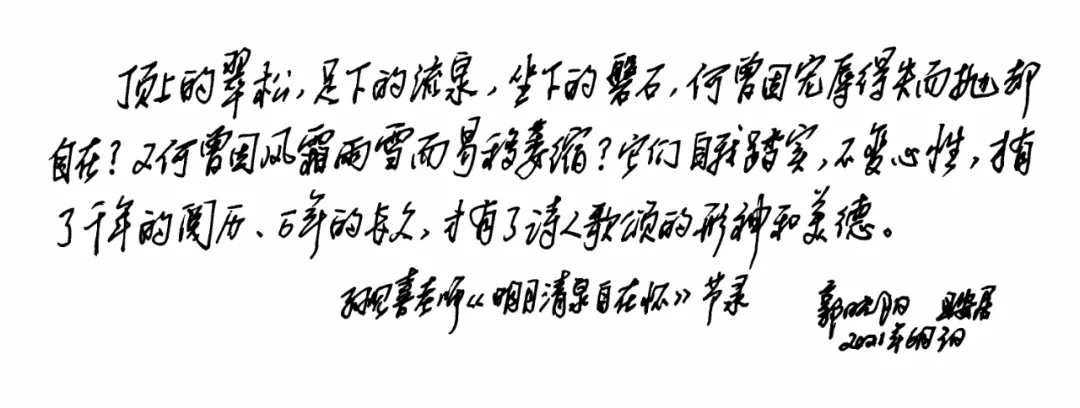 顶上的翠松,足下的流泉,坐下的磐石,何曾因宠辱得失而抛却
自在?又何曾因风霜雨雪而易移萎缩?它们自我踏实,不变心性,才有
了千年的阅历、万年的长久,才有了诗人歌颂的形神和美德。
老师《明月清泉自在怀》节录
郭晓阳
2021年6月3日